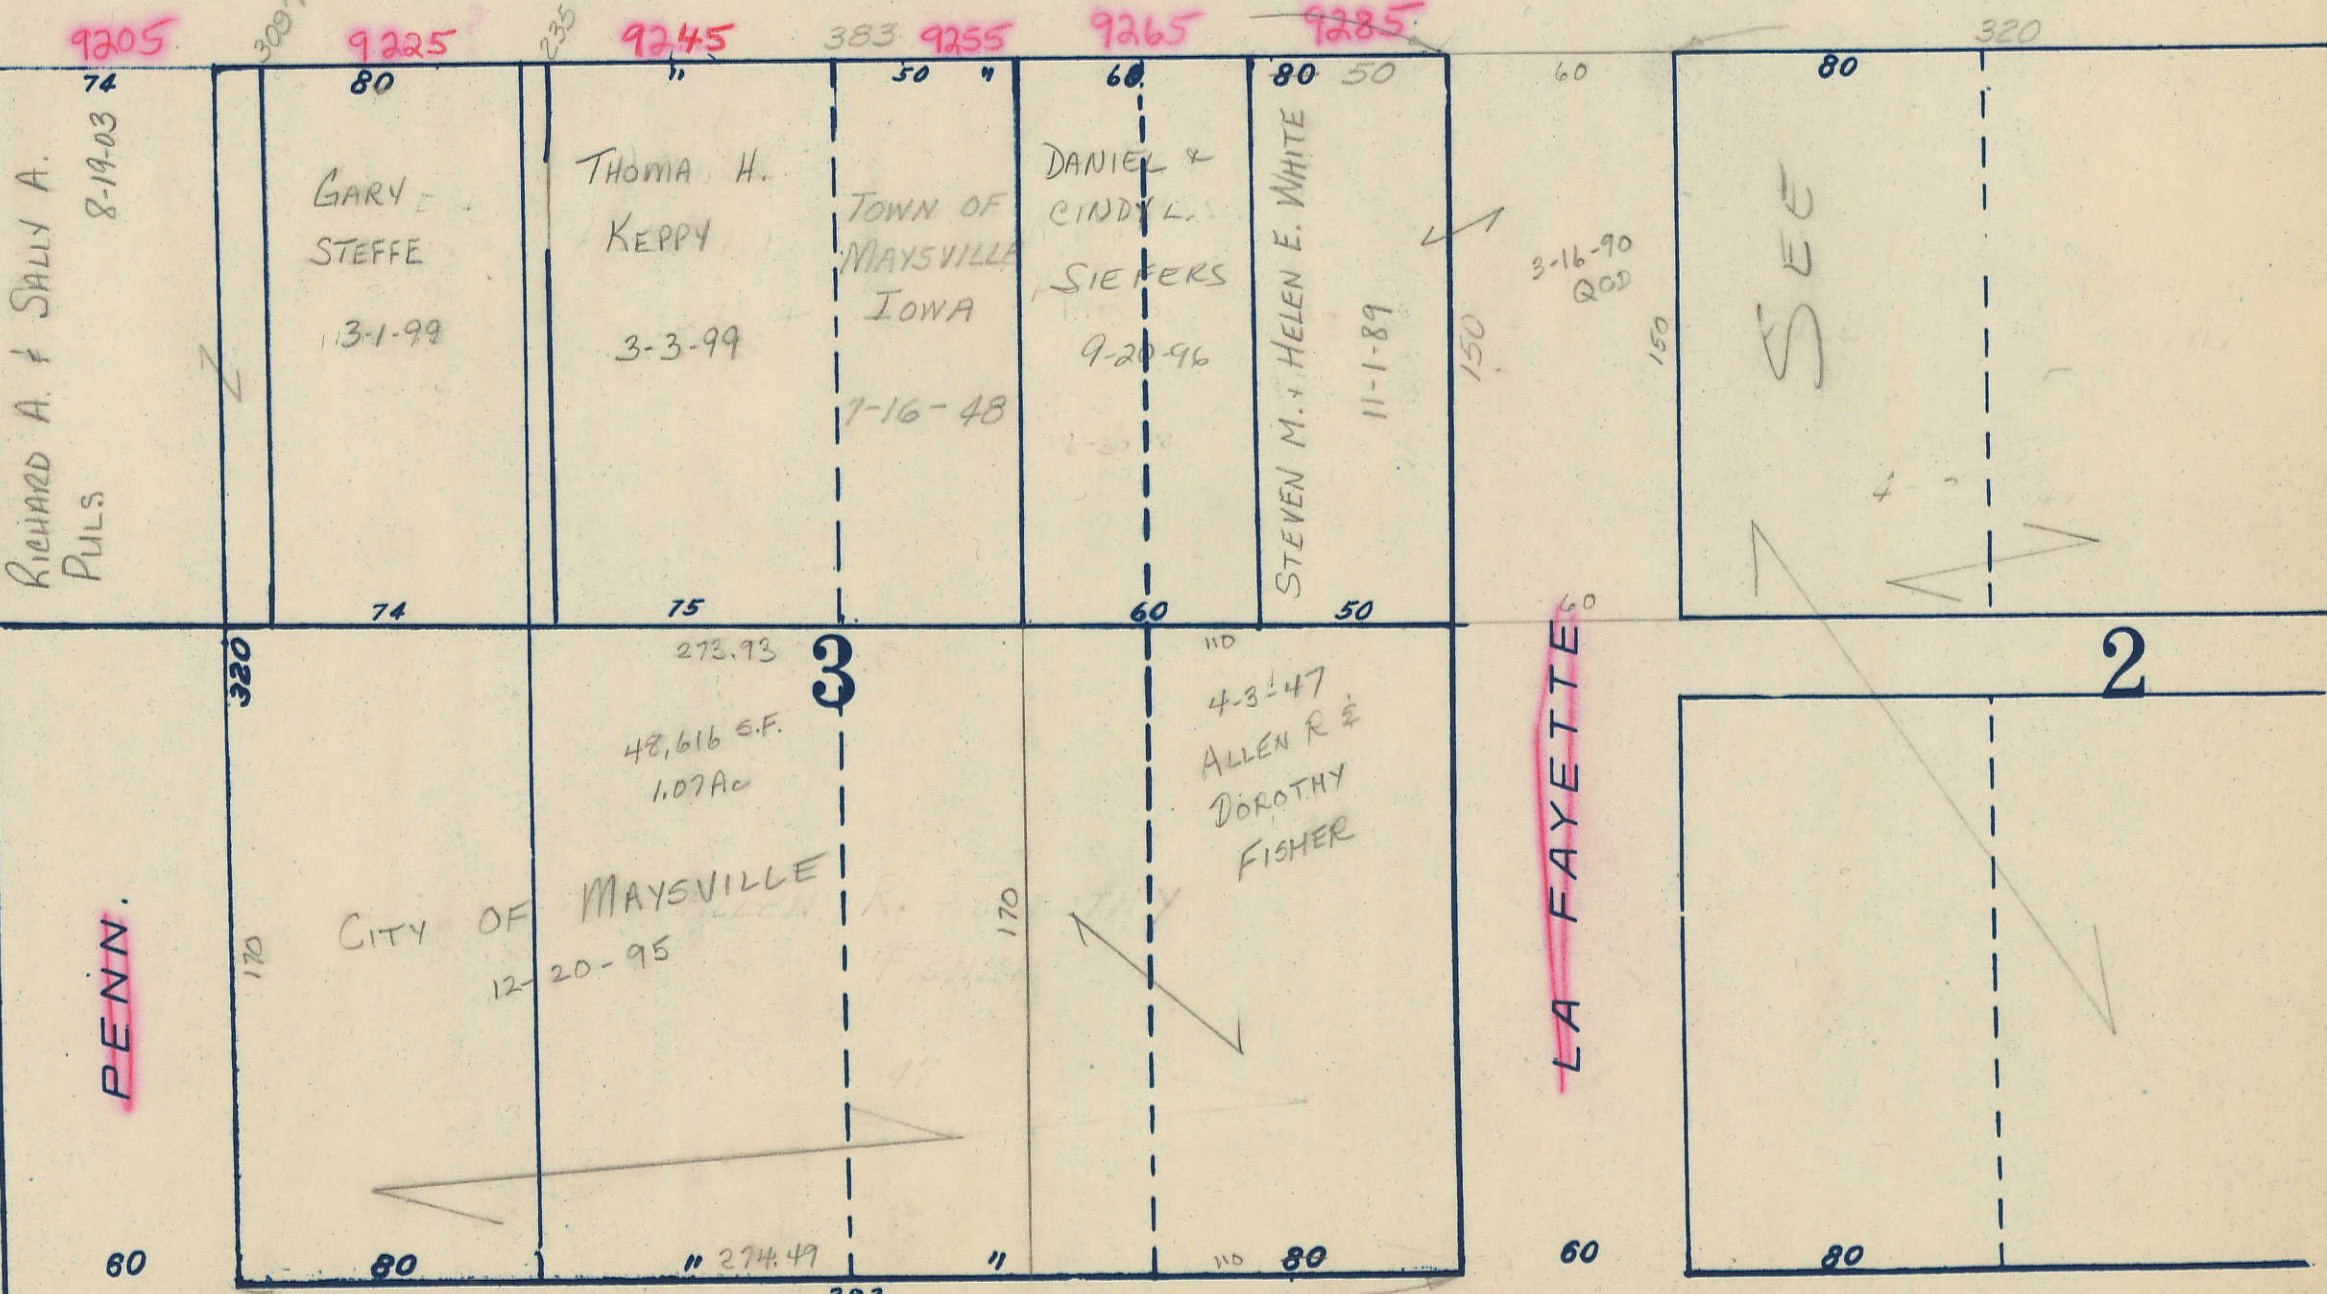 9205
9225
235
9245
383
9255
9265
9285
320
74
80
"
50
"
60
80
50
60
80
RICHARD A. & SALLY A.
PULS
8-19-03
GARY
STEFFE
3-1-99
THOMA H.
KEPPY
3-3-99
TOWN OF
MAYSVILLE
IOWA
7-16-48
DANIEL &
CINDY L.
SIEFERS
9-20-96
STEVEN M. & HELEN E. WHITE
11-1-89
150
3-16-90
QCD
150
SEE
74
75
60
50
60
320
273.93
3
110
2
48,616 S.F.
1.07Ac
4-3-47
ALLEN R &
DOROTHY
FISHER
LA FAYETTE
PENN.
170
CITY OF MAYSVILLE
12-20-95
170
60
80
"
274.49
"
110
80
60
80